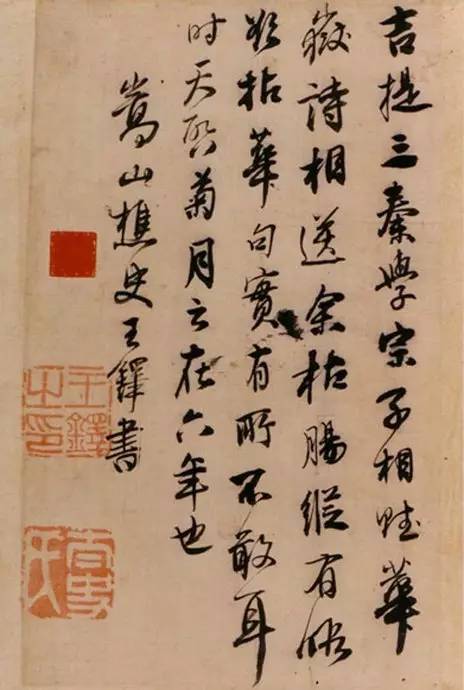 吉提三秦學宗子相賦華
嶽詩相送余枯腸縱有
拈華句實有所不敢耳
时天啓菊月之在六年也
嵩山樵史王鐸書
王鐸之印